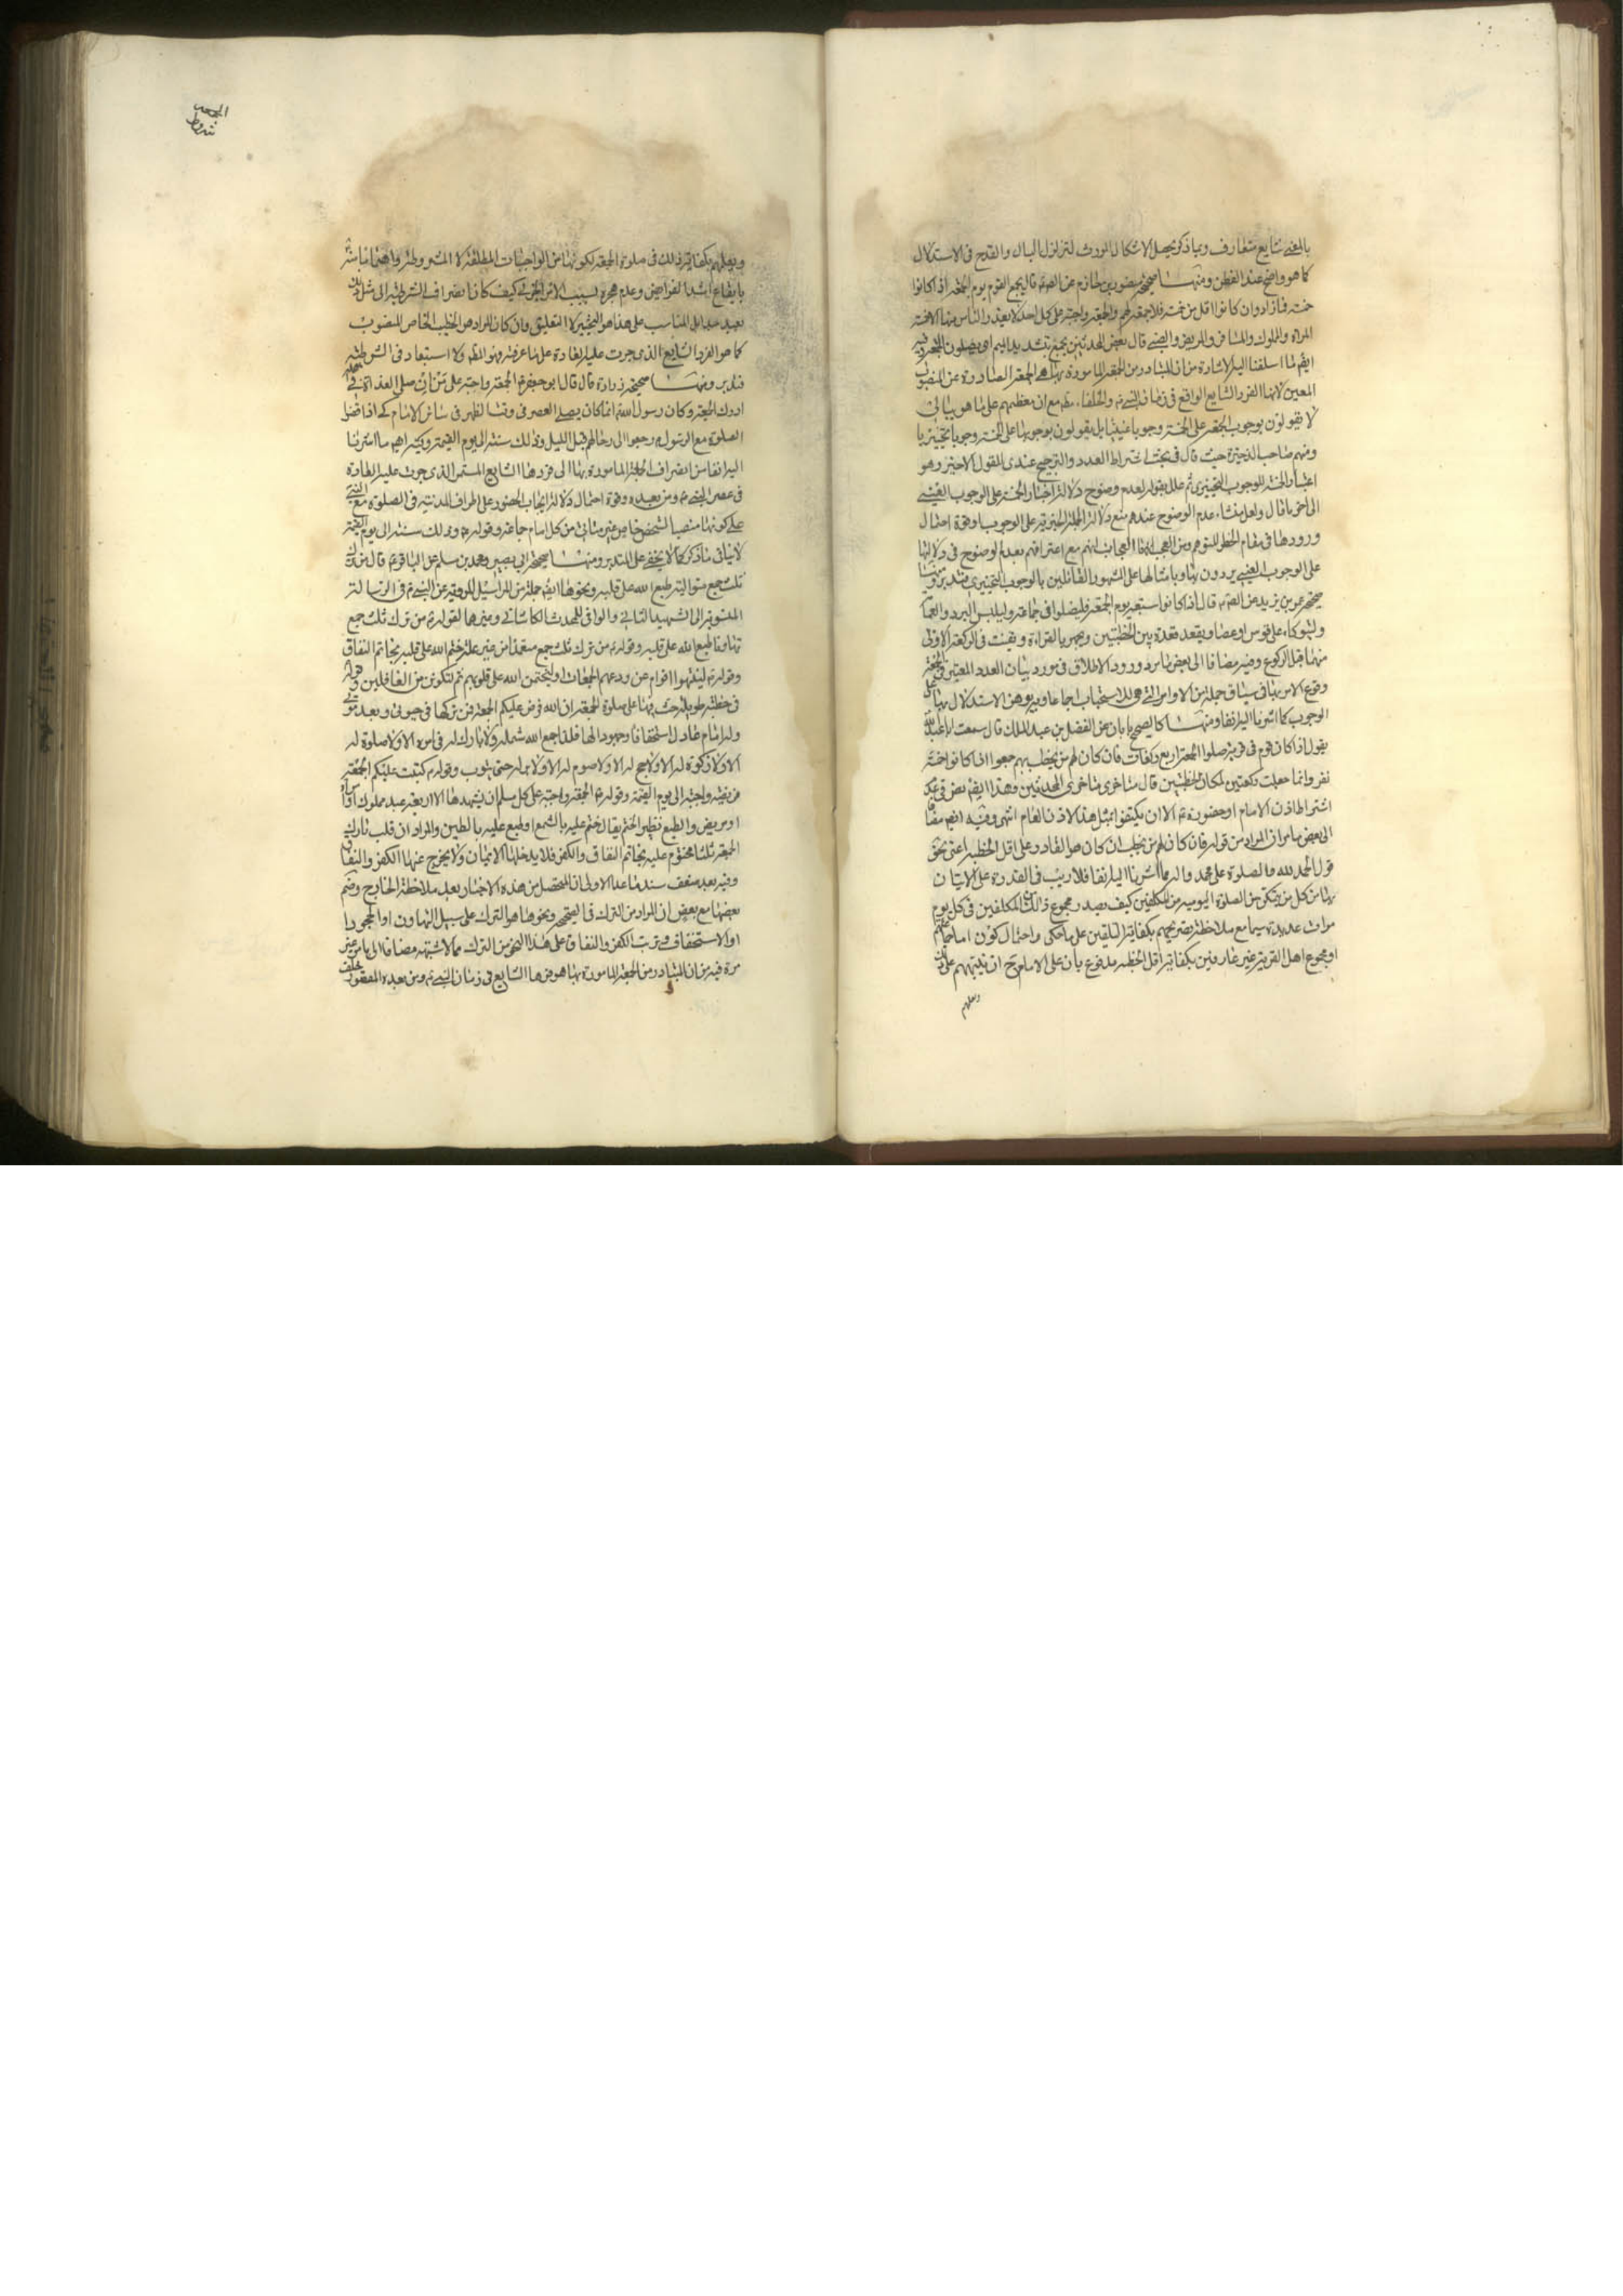 بالمعنى شايع متعارف وبما ذكر يحصل الاشكال المورث لتزلزل البال والقدح فى الاستدلال
كما هو واضح عند الفطن ومنها صحيحة منصور بن حازم عن الصم قال يجمع القوم يوم الجمعة اذا كانوا
خمسة فما زاد وان كانوا اقل من خمسة فلا جمعة لهم والجمعة واجبة على كل احد لا يعذر الناس منها الا خمسة
المراة والمملوك والمسافر والمريض والصبى قال بعض المحدثين يجمع بتشديد الميم اى يصلون الجمعة وفيه
ايضم لما اسلفنا اليه الاشارة من ان المتبادر من الجمعة المامورة بها هى الجمعة الصادرة عن المنصوب
المعين لانها الفرد الشايع الواقع فى زمان النبى ص والخلفاء مع ان معظمهم على ما هو ببالى
لا يقولون بوجوب الجمعة على الخمسة وجوبا عينيا بل يقولون بوجوبها على الخمسة وجوبا تخييريا
ومنهم صاحب الذخيرة حيث قال فى بحث اشتراط العدد والترجيح عندى للقول الاخير وهو
اعتبار الخمسة للوجوب التخييرى ثم علل بقوله لعدم وضوح دلالة اخبار الخمسة على الوجوب العينى
الى اخر ما قال ولعل منشاء عدم الوضوح عنده منع دلالة الجملة الخبرية على الوجوب او قوة احتمال
ورودها فى مقام الحظر المتوهم ومن العجب العجاب انهم مع اعترافهم بعدم الوضوح فى دلالتها
على الوجوب العينى يردون بها وبامثالها على الشهور القائلين بالوجوب التخييرى فتدبر ومنها
صحيحة عمر بن يزيد عن الصم قال اذا كانوا سبعة يوم الجمعة فليصلوا فى جماعة وليلبس البرد والعمامة
وليتوكا على قوس او عصا وليقعد قعدة بين الخطبتين ويجهر بالقراءة ويقنت فى الركعة الاولى
منهما قبل الركوع وفيه مضافا الى بعض ما مر ورود الاطلاق فى مورد بيان العدد المعتبر فى الجمعة
وقوع الامر بها فى سياق جملة من الاوامر التى هى للاستحباب اجماعا وبه يوهن الاستدلال بها على
الوجوب كما اشرنا اليه انفا ومنها كالصحيح بابان عن الفضل بن عبد الملك قال سمعت ابا عبد الله
يقول اذا كان قوم فى قرية صلوا الجمعة اربع ركعات فان كان لهم من يخطب بهم جمعوا اذا كانوا خمسة
نفر وانما جعلت ركعتين لمكان الخطبتين قال متاخرى متاخرى المحدثين وهذا ايضم نص فى عدم
اشتراط اذن الامام او حضوره ثم الا ان يكتفوا بمثل هذا الاذن العام انتهى وفيه ايضم مضافا
الى بعض ما مر ان المراد من قوله فان كان لهم من يخطب ان كان هو القادر على اقل الخطبة اعنى نحو
قول الحمد لله والصلوة على محمد واله مما اشرنا اليه انفا فلا ريب فى القدرة على الايتان
بها من كل من يتمكن من الصلوة اليومية من المكلفين كيف يصدر مجموع ذلك من المكلفين فى كل يوم
مرات عديدة سيما مع ملاحظة تصريحهم بكفاية التلقين على ما حكى واحتمال كون امام جماعتهم
او مجموع اهل القرية غير عارفين بكفاية اقل الخطبة مدفوع بان على الامام ح ان ينبههم على ذلك
ويعلمهم
الجمعه
شروط
ويعلمهم بكفاية ذلك فى صلوة الجمعة لكونها من الواجبات المطلقة لا المشروطة واهتمامنا شر
بايقاع اشد الفرائض وعدم هجره بسبب الامر الجزئى كيف كان انصراف الشرطية الى مثل ذلك
بعيد جدا بل المناسب على هذا هو التنجيز لا التعليق وان كان المراد هو الخطيب الخاص المنصوب
كما هو الفرد الشايع الذى جرت عليه العادة على ما عرفته فهو المظ ولا استبعاد فى الشرطية
فتدبر ومنها صحيحة زرارة قال قال ابو جعفر ع الجمعة واجبة على من ان صلى الغداة فى اهله
ادرك الجمعة وكان رسول الله ص انما كان يصلى العصر فى وقت الظهر فى سائر الايام كى اذا قضوا
الصلوة مع الرسول ص رجعوا الى رحالهم قبل الليل وذلك سنة الى يوم القيمة ويكثر فيهم ما اشرنا
اليه انفا من انصراف الجمعة المامورة بها الى فردها الشايع المستمر الذى جرت عليه العادة
فى عصر النبى ص ومن بعده وقوة احتمال دلالة ايجاب الحضور على اطراف المدينة فى الصلوة مع النبى
على كونها منصبا لشخص خاص غير متاتى من كل امام جماعة وقوله ع وذلك سنة الى يوم القيمة
لا ينافى ما ذكر كما لا يخفى على المتدبر ومنها صحيحة ابى بصير ومحمد بن مسلم عن الباقر ع قال من ترك
ثلث جمع متوالية طبع الله على قلبه ونحوها ايضم جملة من المراسيل المروية عن النبى ص فى الرسالة
المنسوبة الى الشهيد الثانى والوافى للمحدث الكاشانى وغيرها كقوله ص من ترك ثلث جمع
تهاونا طبع الله على قلبه وقوله ص من ترك ثلث جمع متعمدا من غير علة ختم الله على قلبه بخاتم النفاق
وقوله ص لينتهوا اقوام عن ودعهم الجمعات او ليختمن الله على قلوبهم ثم لتكونن من الغافلين وقوله
فى خطبة طويلة حث فيها على صلوة الجمعة ان الله فرض عليكم الجمعة فمن تركها فى حيوتى وبعد موتى
وله امام عادل استخفافا وجحودا لها فلا جمع الله شمله ولا بارك له فى امره الا ولا صلوة له
الا ولا زكوة له الا ولا حج له الا ولا صوم له الا ولا بر له حتى يتوب وقوله ص كتبت عليكم الجمعة
فريضة واجبة الى يوم القيمة وقوله ص الجمعة واجبة على كل مسلم ان يشهدها الا اربعة عبد مملوك او امراة
او مريض والطبع نظير الختم يقال ختم عليه بالشمع او طبع عليه بالطين والمراد ان قلب تارك
الجمعة ثلثا مختوم عليه بخاتم النفاق والكفر فلا يدخلها الايمان ولا يخرج عنها الكفر والنفاق
وفيه بعد ضعف سند ما عدا الاولى ان المتحصل من هذه الاخبار بعد ملاحظة الخارج وضم
بعضها مع بعض ان المراد من الترك فى الصحيحة ونحوها هو الترك على سبيل التهاون او الجحود
او الاستخفاف وترتب الكفر والنفاق على هذا النحو من الترك مما لا شبهة مضافا الى ما مر غير
مرة فيه من ان المتبادر من الجمعة المامورة بها هو فردها الشايع فى زمان النبى ص ومن بعده المعقود خلف